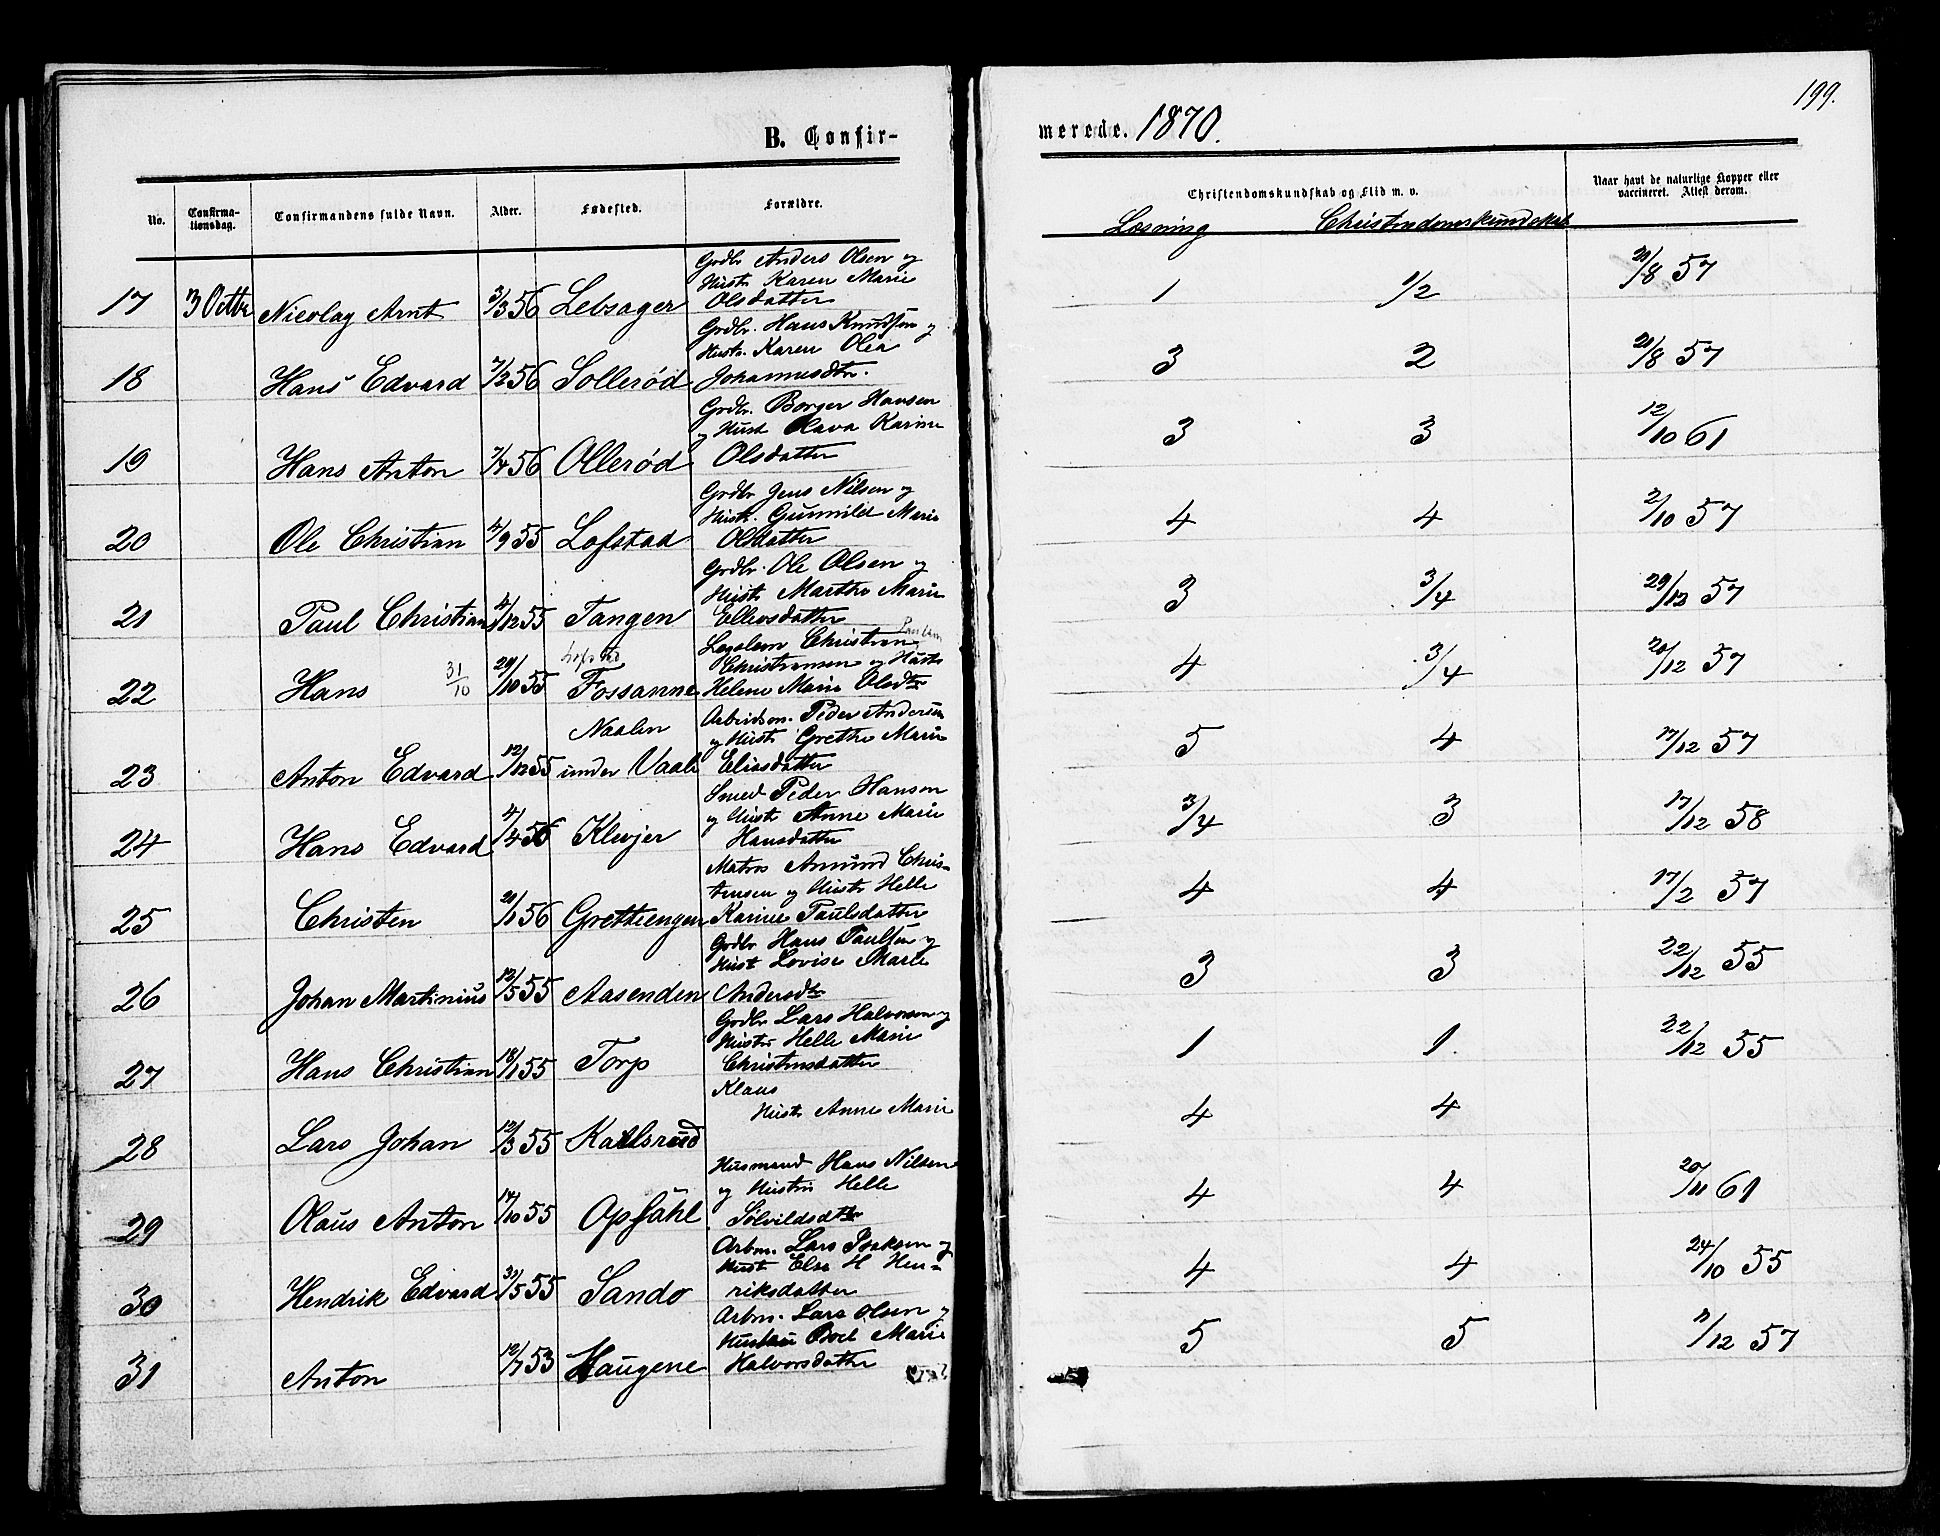 199.
B. Confir-
merede. 1870.
No. Confirma-tionsdag. Confirmandens fulde Navn. Alder. Fødested. Forældre. Christendomskundskab og Flid m. v. Naar havt de naturlige Kopper eller vaccineret. Attest derom.
Læsning Christendomskundskab
Grdbr Anders Olsen og
Hustr Karen Marie
17 3 Octbr Nicolay Arnt 3/3 56 Lebsager Olsdatter 1 1/2 21/8 57
Grdbr. Hans Knudsen og
Hustr. Karen Olea
18 Hans Edvard 7/2 56 Sollerød Johannesdtr. 3 2 21/8 57
Grdbr. Borger Hansen
og Hust Olava Karine
19 Hans Anton 7/4 56 Ollerød Olsdatter 3 3 12/10 61
Grdbr Jens Nilsen og
Hustr. Gunnild Marie
20 Ole Christian 4/9 55 Lofstad Olsdatter 4 4 2/10 57
Grdbr. Ole Olsen og
Hustr Marthe Marie
21 Paul Christian 4/12 55 Tangen Ellevsdatter 3 3/4 29/12 57
Christian
Christiansen og Hustr
22 Hans 31/10 29/10 55 Fossanne Helene Marie Olsdtr 4 3/4 20/12 57
Naalen Arbeidsm. Peder Andersen
og Hustr Grethe Marie
23 Anton Edvard 12/12 55 under Vaale Eliasdatter 5 4 17/12 57
Smed Peder Hanson
og Hustr Anne Marie
24 Hans Edvard 4/4 56 Klevjer Hansdatter 3/4 3 17/12 58
Matros Amund Chris-
tensen og Hustr Helle
25 Christen 21/1 56 Grettiengen Karine Paulsdatter 4 4 17/2 57
Grdbr Hans Paulsen og
Hust Lovise Marie
26 Johan Martinius 12/5 55 Aasenden Andersdtr 3 3 22/12 55
Grdbr Lars Halvorsen og
Hustr Helle Marie
27 Hans Christian 18/1 55 Torp Christensdatter 1 1. 22/12 55
Klaus
Hustr Anne Marie
28 Lars Johan 12/3 55 Karlsrud 4 4
Husmand Hans Nilsen
og Hustru Helle
29 Olaus Anton 14/10 55 Opsahl Sølvildsdtr 4 4 20/11 61
Arbm. Lars Isaksen og
Hust Else H Hen-
30 Hendrik Edvard 31/5 55 Sando riksdatter 4 4 24/10 55
Arbm. Lars Olsen og
Hustru Boel Marie
31 Anton 12/7 53 Haugene Halvorsdatter 5 5 11/12 57